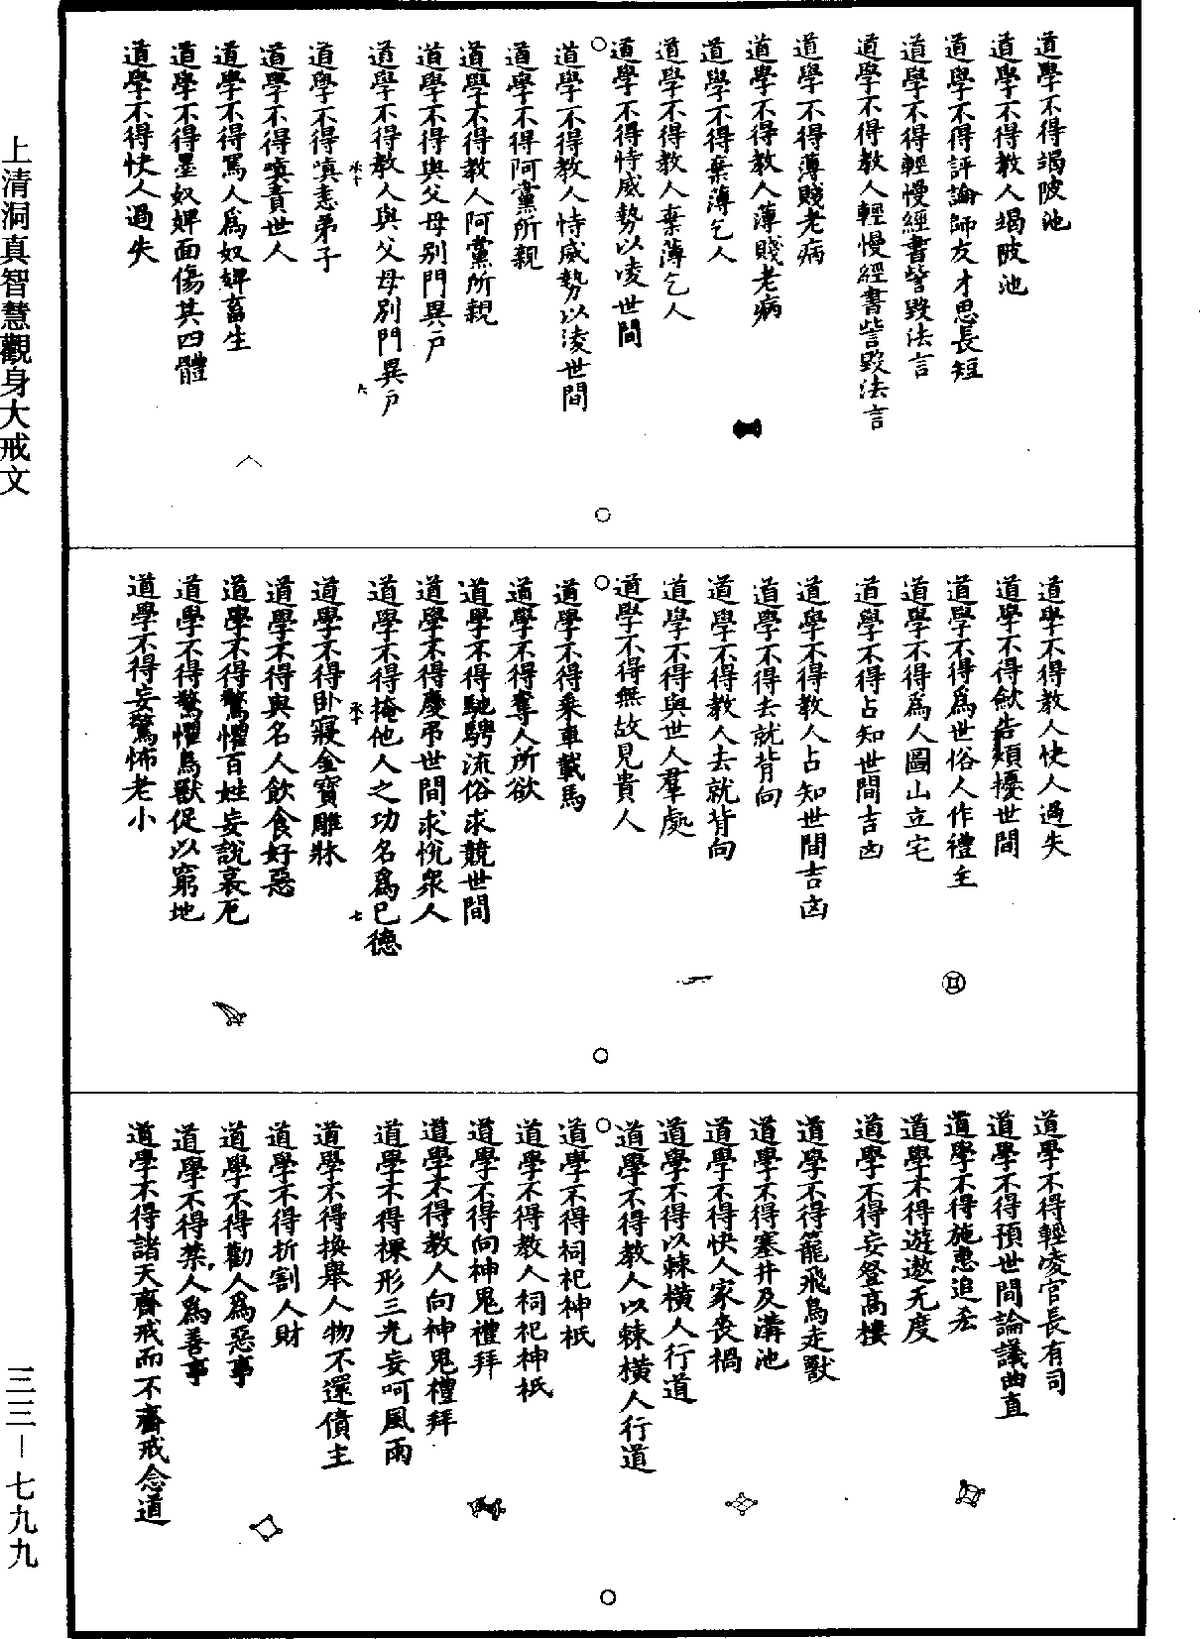 道學不得竭陂池
道學不得教人竭陂池
道學不得評論師友才思長短
道學不得輕慢經書訾毀法言
道學不得教人輕慢經書訾毀法言
道學不得薄賤老病
道學不得教人薄賤老病
道學不得棄薄乞人
道學不得教人棄薄乞人
道學不得恃威勢以凌世間
道學不得教人恃威勢以凌世間
道學不得阿黨所親
道學不得教人阿黨所親
道學不得與父母別門異戶
道學不得教人與父母別門異戶
六
道學不得嗔恚弟子
道學不得嗔責世人
道學不得罵人為奴婢畜生
道學不得墨奴婢面傷其四體
道學不得快人過失
道學不得教人快人過失
道學不得歛告煩擾世間
道學不得為世俗人作禮主
道學不得為人圖山立宅
道學不得占知世間吉凶
道學不得教人占知世間吉凶
道學不得去就背向
道學不得教人去就背向
道學不得與世人羣處
道學不得無故見貴人
道學不得乘車載馬
道學不得奪人所欲
道學不得馳騁流俗求競世間
道學不得慶弔世間求悅眾人
道學不得掩他人之功名為己德
七
道學不得卧寢金寶雕牀
道學不得與名人飲食好惡
道學不得驚懼百姓妄說衰厄
道學不得驚懼鳥獸促以窮地
道學不得妄驚怖老小
道學不得輕凌官長有司
道學不得預世間論議曲直
道學不得施惠追丟
道學不得遊遨无度
道學不得妄登高樓
道學不得籠飛鳥走獸
道學不得塞井及溝池
道學不得快人家喪禍
道學不得以棘橫人行道
道學不得教人以棘橫人行道
道學不得祠祀神祇
道學不得教人祠祀神祇
道學不得向神鬼禮拜
道學不得教人向神鬼禮拜
道學不得裸形三光妄呵風雨
道學不得換舉人物不還債主
道學不得折割人財
道學不得勸人為惡事
道學不得禁人為善事
道學不得諸天齋戒而不齋戒念道
上清洞真智慧觀身大戒文
三三—七九九